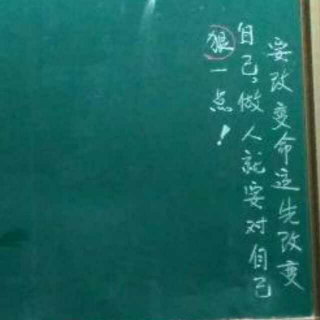 要改变命运先改变
自己,做人就要对自己
狠一点!